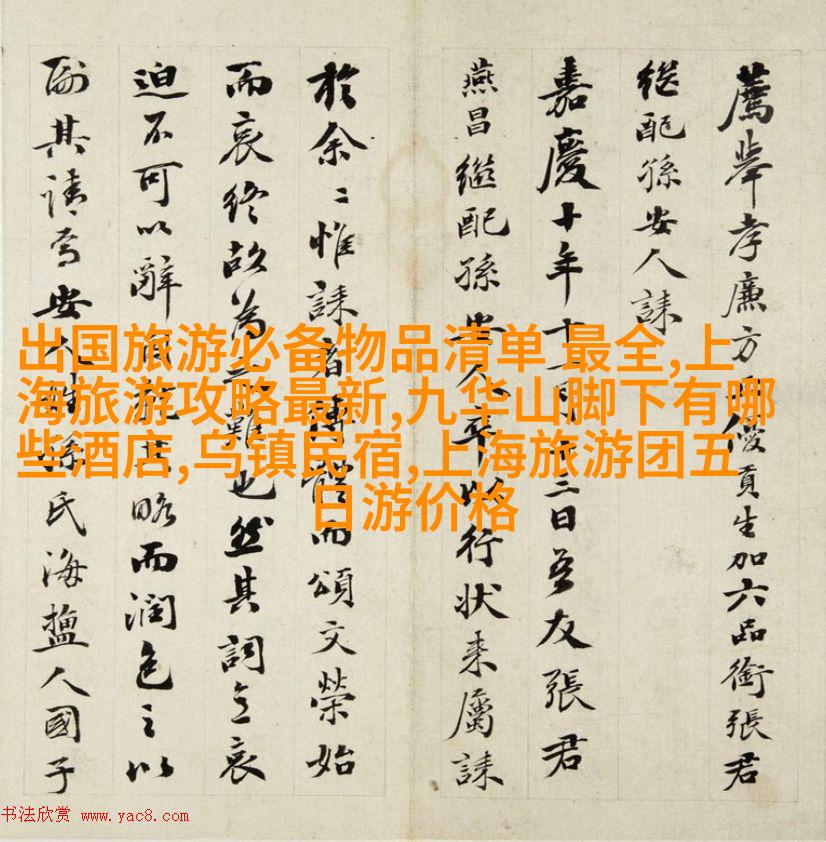 薦舉孝廉方正優貢生加六品銜張君
繼配孫安人誄
嘉慶十年十一月廿三日吾友張君
燕昌繼配孫安人卒以行狀來屬誄
於余〻惟誄者傳體而頌文榮始
而哀終故為之難也然其詞哀
迫不可以辭其略而潤色之以
副其請焉安人姓孫氏海鹽人國子
出国旅游必备物品清单 最全,上
海旅游攻略最新,九华山脚下有哪
些酒店,乌镇民宿,上海旅游团五
日游价格
书法欣赏 www.yac8.com